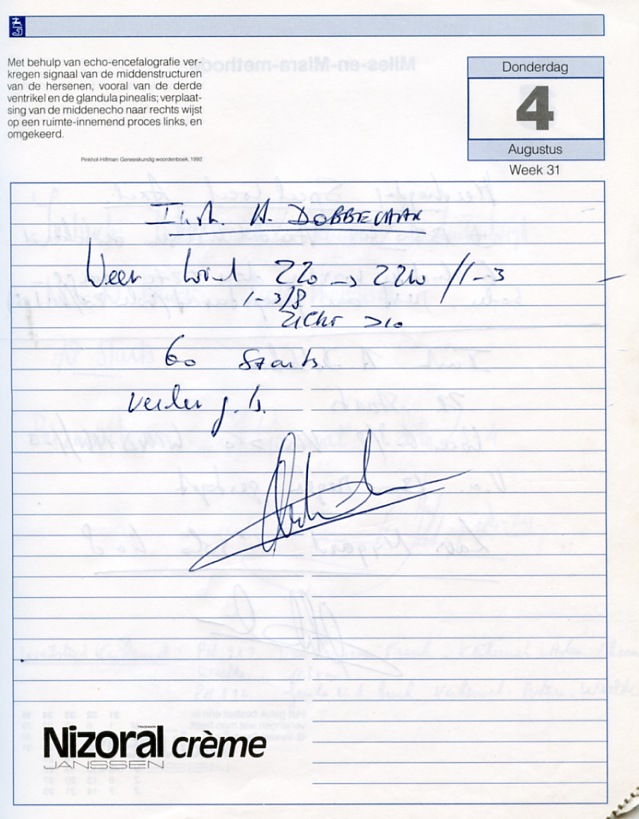 Met behulp van echo-encefalografie ver-
kregen signaal van de middenstructuren
van de hersenen, vooral van de derde
ventrikel en de glandula pinealis; verplaat-
sing van de middenecho naar rechts wijst
op een ruimte-innemend proces links, en
omgekeerd.
Pinkhof-Hilfman: Geneeskundig woordenboek, 1992
Donderdag
4
Augustus
Week 31
Instr. A. DOBBELAAR
Weer Wind 220 → 220 / 1-3
1-3/8
Zicht >10
60 Starts.
verder g.b.
Nizoral crème
JANSSEN